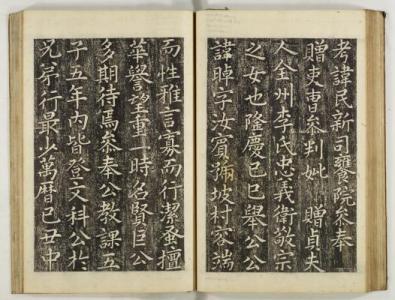 考諱民新司饔院叅奉
贈吏曹叅判妣 贈貞夫
人全州李氏忠義衛敬宗
之女也隆慶己巳舉公公
諱晫字汝賓號坡村容端
而性雅言寡而行潔蚤擅
華譽望重一時名賢巨公
多期待焉叅奉公教課五
子五年內皆登文科公於
兄弟行最少萬曆己丑中